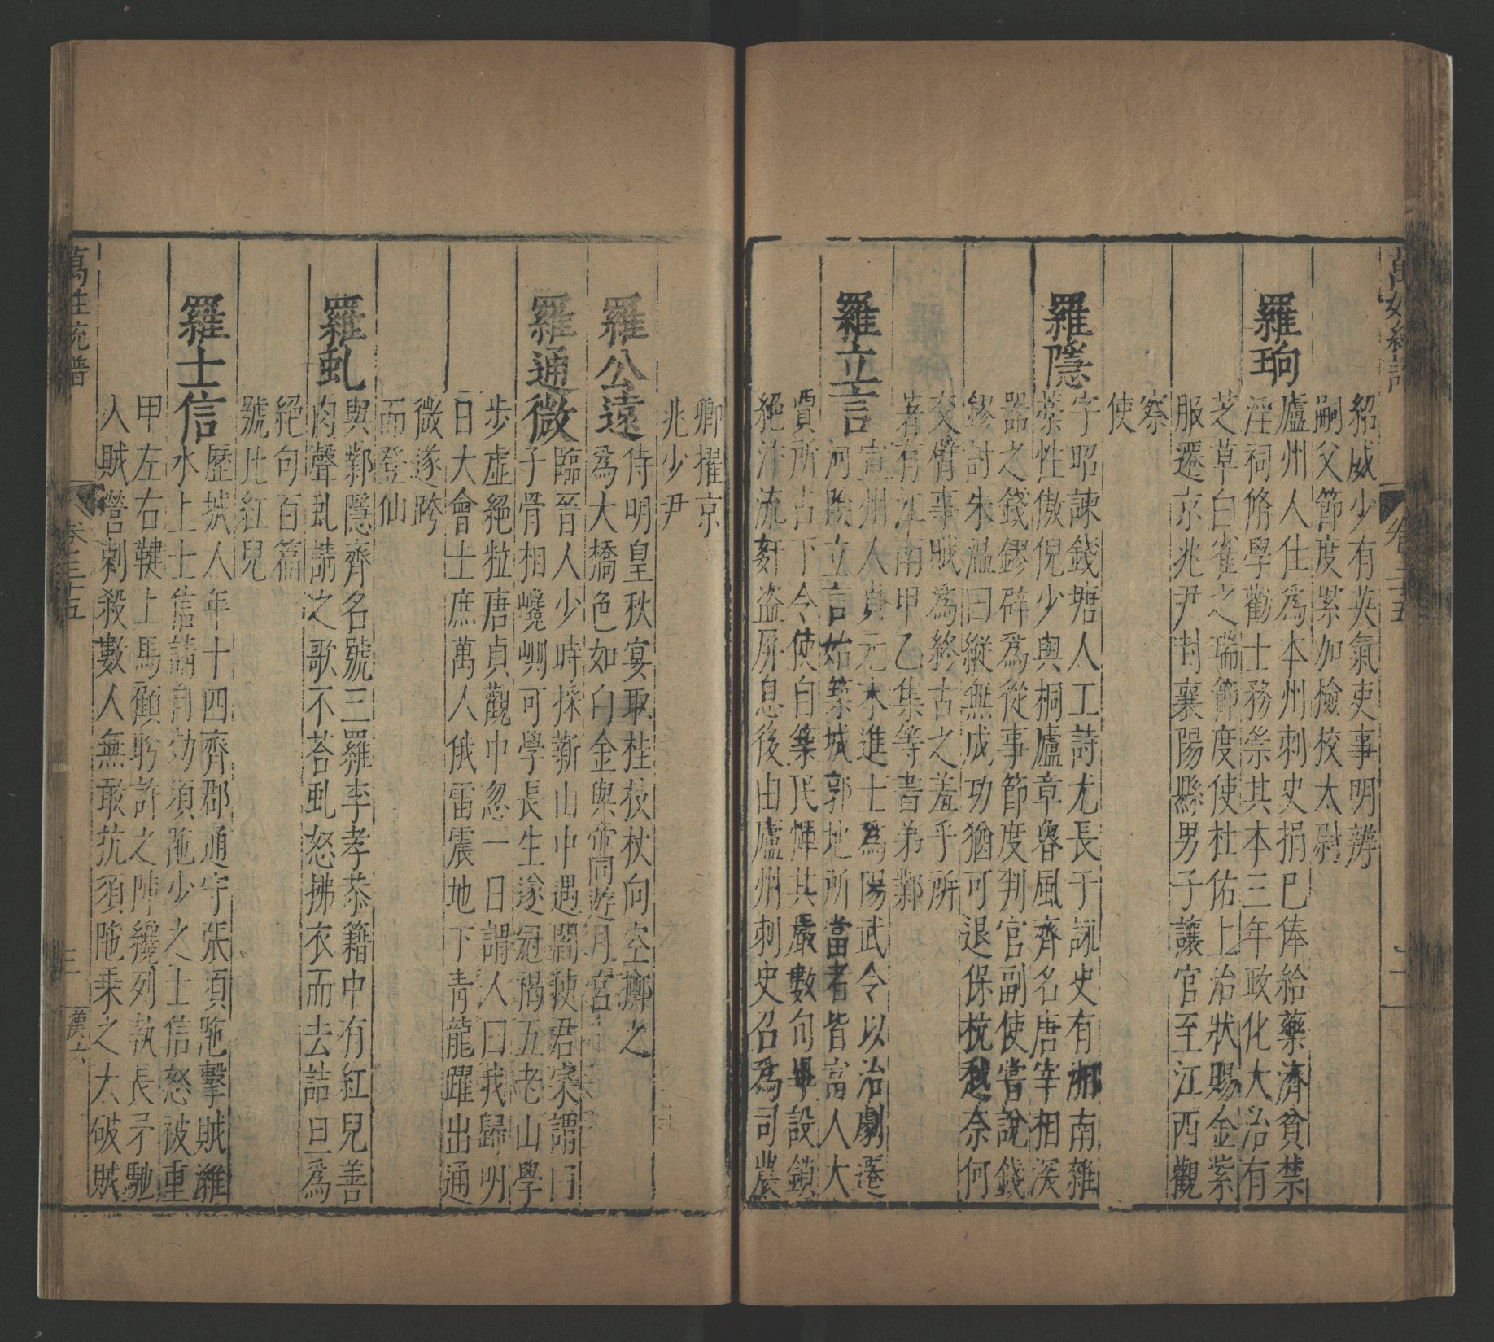 萬姓統譜
卷三十五
二
紹威少有英氣吏事明辨
嗣父節度累加檢校太尉
羅珦
廬州人仕為本州刺史捐巳俸給藥濟貧禁
淫祠脩學勸士務崇其本三年政化大治有
芝草白雀之瑞節度使杜佑上治狀賜金紫
服遷京兆尹封襄陽縣男子讓官至江西觀
察
使
羅隱
字昭諫錢塘人工詩尤長于詠史有湘南雜
藁性傲倪少與桐廬章魯風齊名唐宰相深
器之錢鏐辟為從事節度判官副使嘗說錢
鏐討朱溫曰縱無成功猶可退保杭越奈何
交臂事賊為終古之羞乎所
著有江南甲乙集等書弟鄴
羅立言
宣州人貞元末進士為陽武令以治劇遷
河陰立言始築城郭地所當者皆富人大
賈所占下令使自築民憚其嚴數旬畢設鎖
絕汴流奸盜屏息後由廬州刺史召為司農
卿擢京
兆少尹
羅公遠
侍明皇秋宴取桂枝杖向空擲之
為大橋色如白金與嘗同遊月宮
羅通微
臨晉人少時採薪山中遇閻使君寀謂曰
子骨相巉峭可學長生遂冠褐五老山學
步虛絕粒唐貞觀中忽一日謂人曰我歸明
日大會士庶萬人俄雷震地下青龍躍出通
微遂跨
而登仙
羅虬
與鄴隱齊名號三羅李孝恭籍中有紅兒善
肉聲虬請之歌不荅虬怒拂衣而去詰旦為
絕句百篇
號比紅兒
羅士信
歷城人年十四齊郡通守張須陁擊賊濰
水上士信請自効須陁少之士信怒被重
甲左右鞬上馬顧盻許之陣纔列執長矛馳
入賊營刺殺數人無敢抗須陁乘之大破賊
萬姓統譜
卷三十五
三